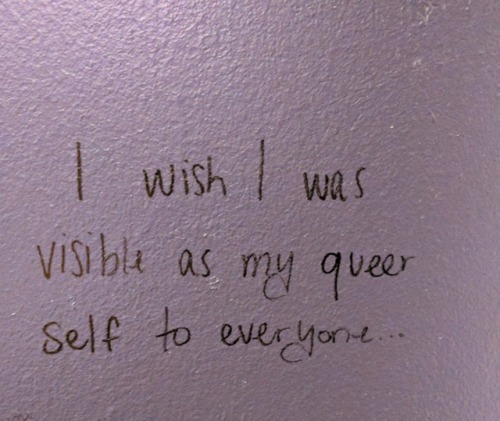 I wish I was
visible as my queer
self to everyone...